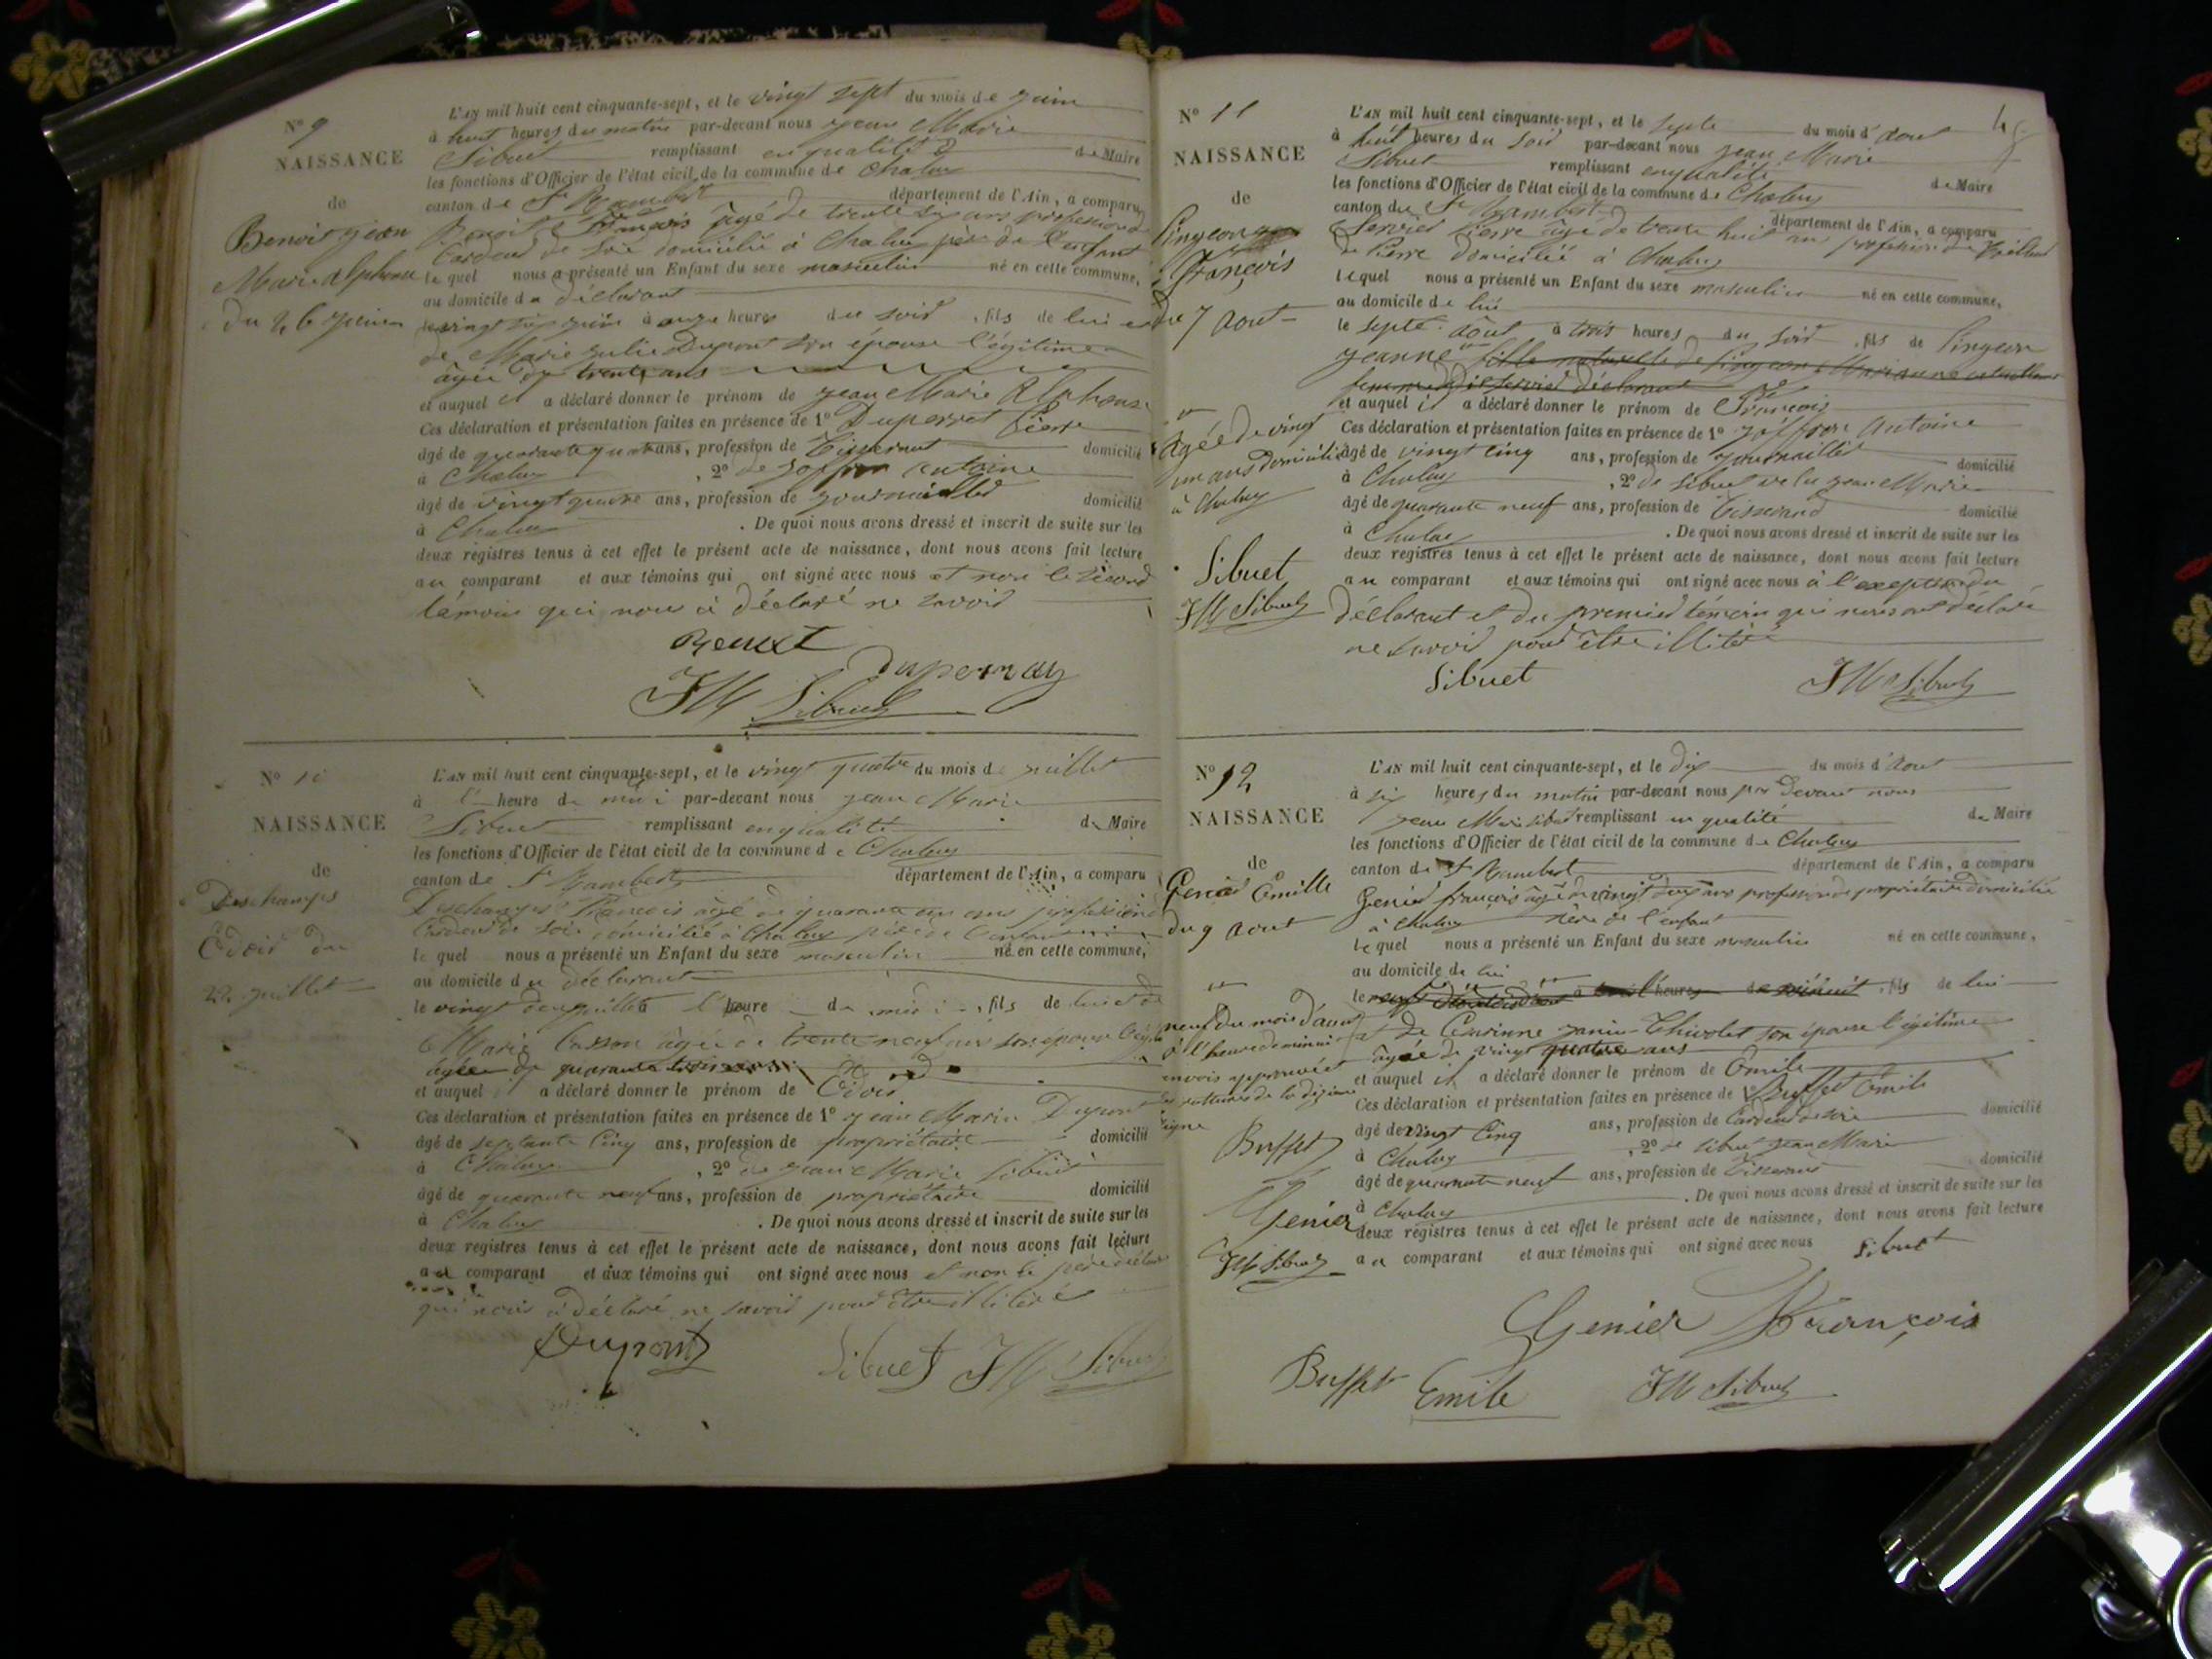 N° 9
NAISSANCE
de
Benoit jean
Marie alphonse
du 26 juin
L'AN mil huit cent cinquante-sept, et le vingt sept du mois de juin
à huit heures du matin par-devant nous jean Marie
Sibuet remplissant en qualité d de Maire
les fonctions d'Officier de l'état civil de la commune de Chaley
canton de St Rambert département de l'Ain, a comparu
Benoit François âgé de trente six ans profession de
Cardeur de soie domicilié à Chaley père de l'enfant
lequel nous a présenté un Enfant du sexe masculin né en cette commune,
au domicile du déclarant
le vingt six juin à onze heures du soir, fils de lui et
de Marie julie Dupont son épouse légitime
âgée de trente ans
et auquel il a déclaré donner le prénom de jean Marie Alphonse
Ces déclaration et présentation faites en présence de 1° Duperret Pierre
âgé de quarante quatre ans, profession de Tisserant domicilié
à Chaley, 2° de joffron antoine
âgé de vingt quatre ans, profession de journaillier domicilié
à Chaley. De quoi nous avons dressé et inscrit de suite sur les
deux registres tenus à cet effet le présent acte de naissance, dont nous avons fait lecture
au comparant et aux témoins qui ont signé avec nous et non le second
témoin qui nous a déclaré ne savoir
Benoit
JM Sibuet
N° 10
NAISSANCE
de
Deschamps
du
22 juillet
L'AN mil huit cent cinquante-sept, et le vingt quatre du mois de juillet
à l' heure de midi par-devant nous jean Marie
Sibuet remplissant en qualité de Maire
les fonctions d'Officier de l'état civil de la commune de Chaley
canton de St Rambert département de l'Ain, a comparu
Deschamps François âgé de quarante ans profession
Cardeur de soie domicilié à Chaley père de l'enfant
le quel nous a présenté un Enfant du sexe masculin né en cette commune,
au domicile du déclarant
le vingt deux juillet à l'heure de midi, fils de lui et de
Marie âgée de trente neuf ans son épouse légitime
âgée de quarante
et auquel il a déclaré donner le prénom de
Ces déclaration et présentation faites en présence de 1° jean Marie Dupont
âgé de septante Cinq ans, profession de propriétaire domicilié
à Chaley, 2° de jean Marie Sibuet
âgé de quarante neuf ans, profession de propriétaire domicilié
à Chaley. De quoi nous avons dressé et inscrit de suite sur les
deux registres tenus à cet effet le présent acte de naissance, dont nous avons fait lecture
au comparant et aux témoins qui ont signé avec nous et non le père
qui nous a déclaré ne savoir pour être illitéré
Dupont
Sibuet JM Sibuet
N° 11
NAISSANCE
de
Pingeon
François
du 7 Aout
Agée de vingt
un ans domiciliée
à Chaley
Sibuet
JM Sibuet
L'AN mil huit cent cinquante-sept, et le septe du mois d'Aout
à huit heures du soir par-devant nous jean Marie
Sibuet remplissant en qualité de Maire
les fonctions d'Officier de l'état civil de la commune de Chaley
canton de St Rambert département de l'Ain, a comparu
Servier Pierre âgé de trente huit ans profession de Tailleur
de Pierre domicilié à Chaley
lequel nous a présenté un Enfant du sexe masculin né en cette commune,
au domicile de lui
le septe Aout à trois heures du soir, fils de Pingeon
jeanne fille naturelle de Pingeon
déclarant
et auquel il a déclaré donner le prénom de François
Ces déclaration et présentation faites en présence de 1° joffron Antoine
âgé de vingt cinq ans, profession de journaillier domicilié
à Chaley, 2° de Sibuet jean Marie
âgé de quarante neuf ans, profession de Tisserand domicilié
à Chaley. De quoi nous avons dressé et inscrit de suite sur les
deux registres tenus à cet effet le présent acte de naissance, dont nous avons fait lecture
au comparant et aux témoins qui ont signé avec nous à l'exeption du
déclarant et du premier témoin qui nous ont déclaré
ne savoir pour être illitéré
Sibuet JM Sibuet
N° 12
NAISSANCE
de
Genier Emille
du 9 Aout
neuf du mois d'Aout
à l'heure de minuit
Buffet
Genier
JM Sibuet
L'AN mil huit cent cinquante-sept, et le dix du mois d'Aout
à six heures du matin par-devant nous par devant nous
jean Marie Sibuet remplissant en qualité de Maire
les fonctions d'Officier de l'état civil de la commune de Chaley
canton de St Rambert département de l'Ain, a comparu
Genier françois âgé de vingt ans profession de propriétaire domicilié
à Chaley père de l'enfant
lequel nous a présenté un Enfant du sexe masculin né en cette commune,
au domicile de lui
le à heures de minuit, fils de lui
et de Thivolet son épouse légitime
âgée de vingt quatre ans
et auquel il a déclaré donner le prénom de Emile
Ces déclaration et présentation faites en présence de 1° Buffet Emile
âgé de vingt Cinq ans, profession de Cardeur de soie domicilié
à Chaley, 2° de Sibuet jean Marie
âgé de quarante neuf ans, profession de Tisserand domicilié
à Chaley. De quoi nous avons dressé et inscrit de suite sur les
deux registres tenus à cet effet le présent acte de naissance, dont nous avons fait lecture
au comparant et aux témoins qui ont signé avec nous Sibuet
Genier François
Buffet Emile JM Sibuet